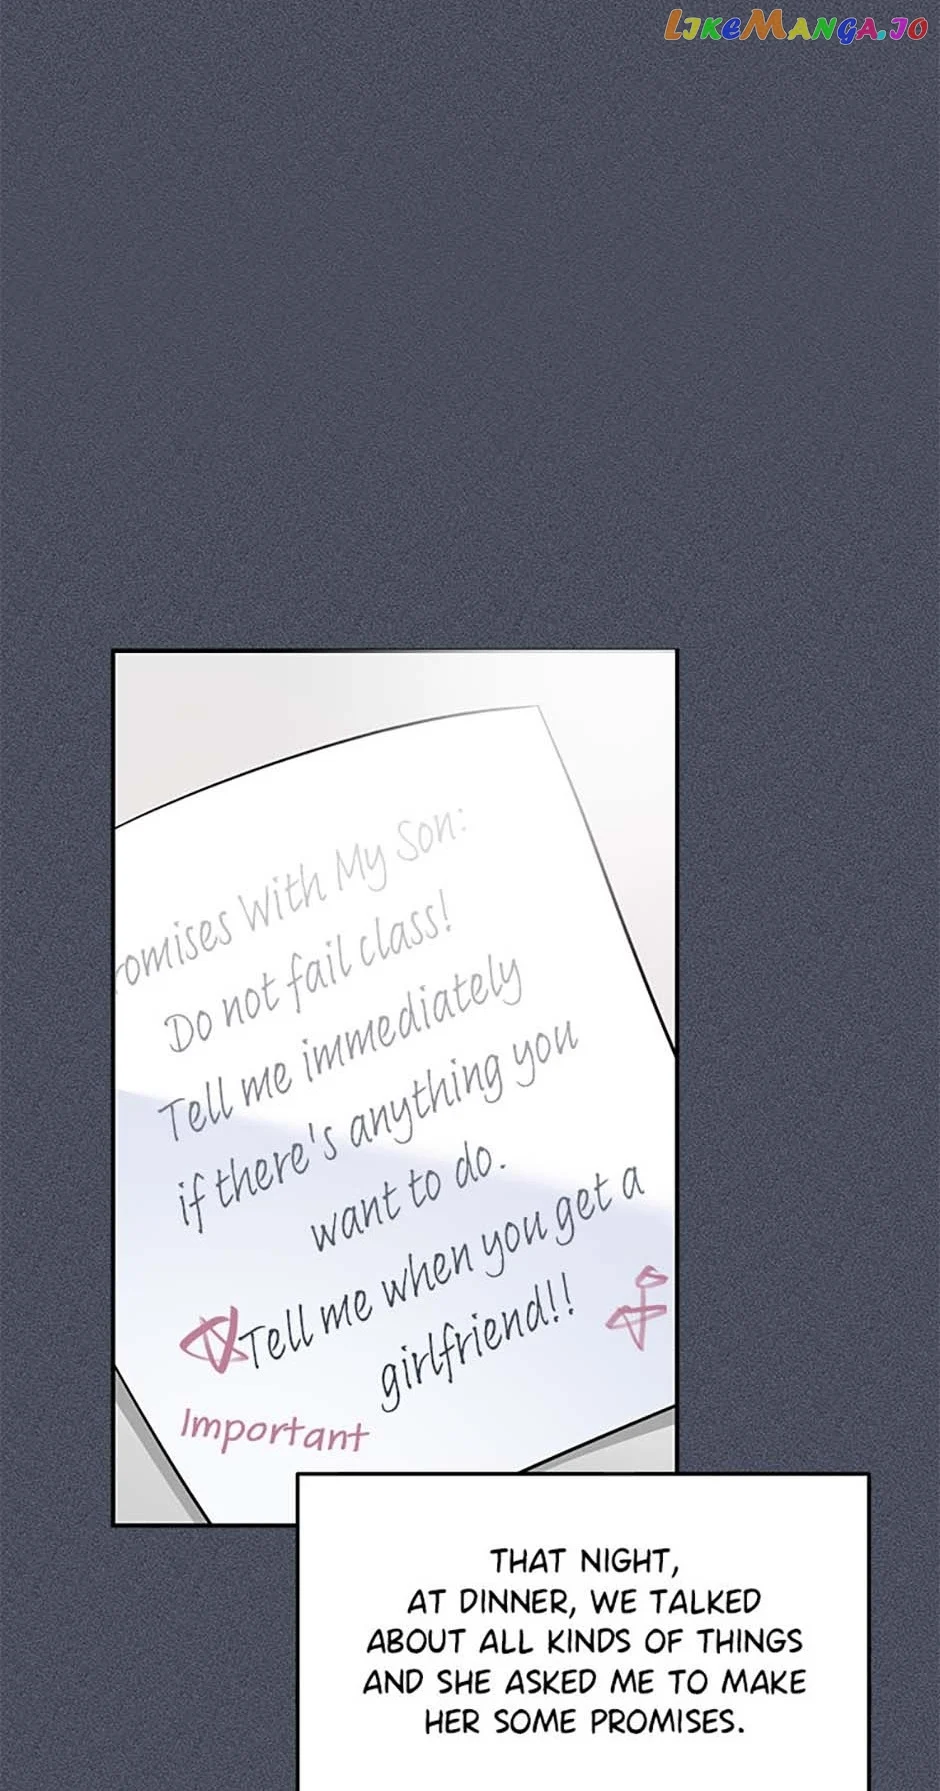 LIKEMANGA.IO
romises With My Son:
Do not fail class!
Tell me immediately
if there's anything you
want to do.
Tell me when you get a
girlfriend!!
Important
THAT NIGHT,
AT DINNER, WE TALKED
ABOUT ALL KINDS OF THINGS
AND SHE ASKED ME TO MAKE
HER SOME PROMISES.